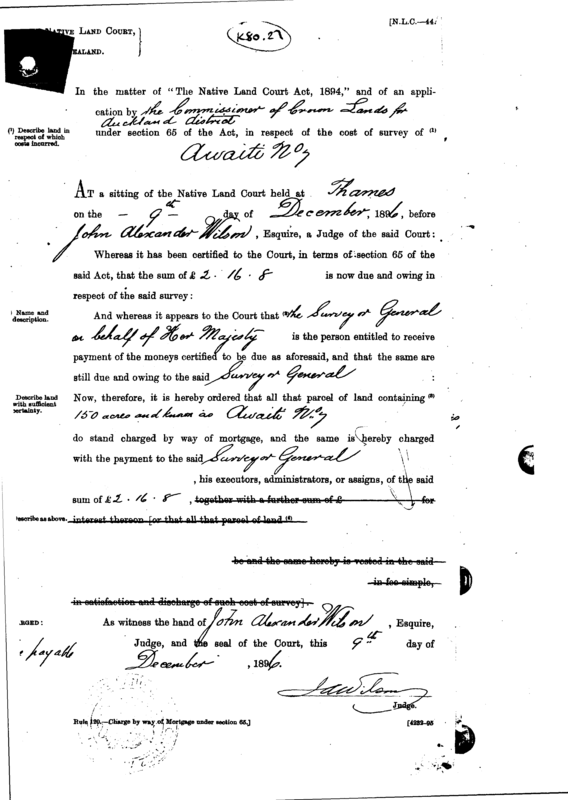 NATIVE LAND COURT,
EALAND.
K80.27
[N.L.C.—44.
In the matter of "The Native Land Court Act, 1894," and of an appli-
cation by the Commissioner of Crown Lands for
Auckland District
(1) Describe land in respect of which costs incurred.
under section 65 of the Act, in respect of the cost of survey of (1)
Awaiti No 7
AT a sitting of the Native Land Court held at Thames
on the - 9th - day of December, 1896, before
John Alexander Wilson, Esquire, a Judge of the said Court:
Whereas it has been certified to the Court, in terms of section 65 of the
said Act, that the sum of £2.16.8 is now due and owing in
respect of the said survey:
Name and description.
And whereas it appears to the Court that the Surveyor General
on behalf of Her Majesty is the person entitled to receive
payment of the moneys certified to be due as aforesaid, and that the same are
still due and owing to the said Surveyor General :
Describe land with sufficient certainty.
Now, therefore, it is hereby ordered that all that parcel of land containing
150 acres and known as Awaiti No 7
do stand charged by way of mortgage, and the same is hereby charged
with the payment to the said Surveyor General
, his executors, administrators, or assigns, of the said
sum of £2.16.8, together with a further sum of £ for
escribe as above.
interest thereon [or that all that parcel of land
be and the same hereby is vested in the said
in fee simple,
in satisfaction and discharge of such cost of survey].
RGED:
As witness the hand of John Alexander Wilson, Esquire,
payable
Judge, and the seal of the Court, this 9th day of
December, 1896.
JAWilson
Judge.
Rule 120.—Charge by way of Mortgage under section 65.]
[4233-95